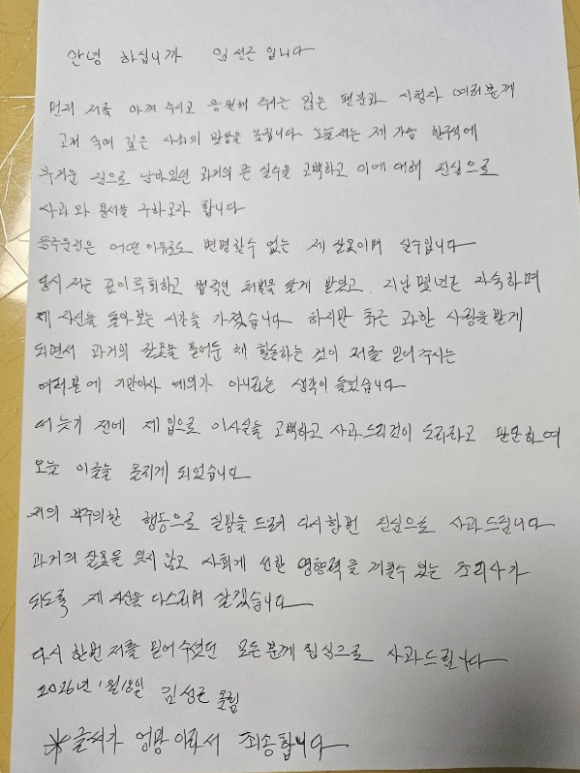 안녕 하십니까 임성근 입니다
먼저 저를 아껴 주시고 응원해 주시는 많은 팬분과 시청자 여러분께
고개 숙여 깊은 사죄의 말씀을 올립니다 오늘 저는 제 가슴 한구석에
무거운 짐으로 남아있던 과거의 큰 실수를 고백하고 이에 대해 진심으로
사과와 용서를 구하고자 합니다
음주운전은 어떤 이유로도 변명할수 없는 제 잘못이며 실수입니다
당시 저는 깊이 후회하고 법적인 처벌을 달게 받았고, 지난 몇년간 자숙하며
제 자신을 돌아보는 시간을 가졌습니다 하지만 최근 과한 사랑을 받게
되면서 과거의 잘못을 묻어둔 채 활동하는 것이 저를 믿어주시는
여러분에 기만이자 예의가 아니라는 생각이 들었습니다
더 늦기 전에 제 입으로 이사실을 고백하고 사과드리것이 도리라고 판단하여
오늘 이글을 올리게 되었습니다
저의 부주의한 행동으로 실망을 드려 다시한번 진심으로 사과드립니다
과거의 잘못을 잊지 않고 사회게 선한 영향력을 끼칠수 있는 조리사가
되도록 제 자신을 다스리며 살겠습니다
다시 한번 저를 믿어주셨던 모든분게 진심으로 사과드립니다
2026년 1월 18일 임성근 올림
※글씨가 엉망이라서 죄송합니다